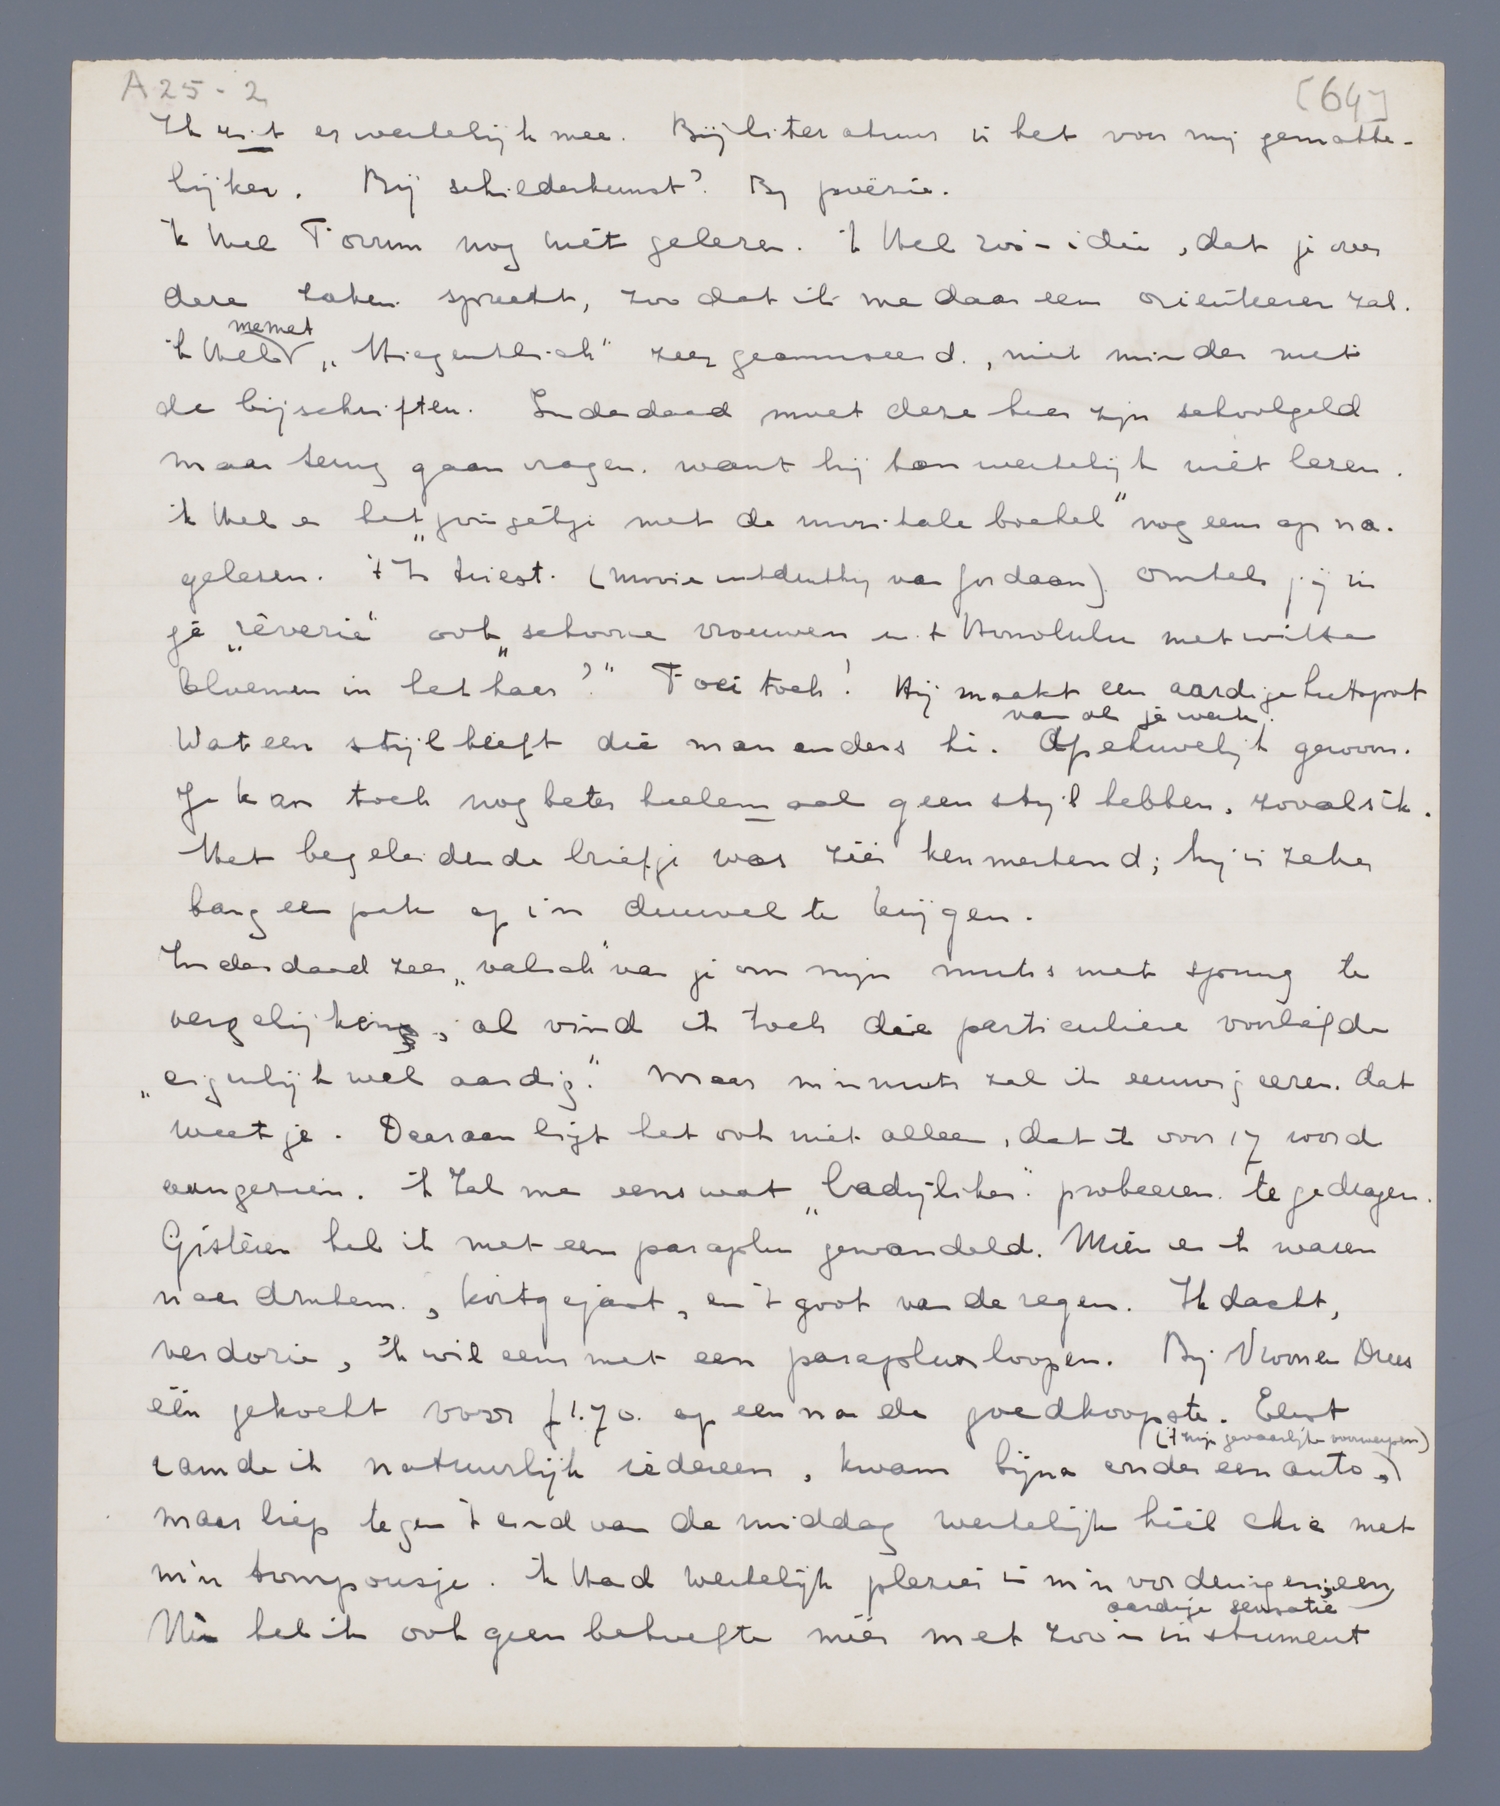 A 25-2
[64]
Ik zit er werkelijk mee. Bij literatuur is het voor mij gemakke-
lijker. Bij schilderkunst? By poëzie.
'k Heb Forum nog niét gelezen. 'k Heb zoo-n idee, dat je over
deze zaken spreekt, zoo dat ik me daar een orienteeren zal.
'k Heb memet „Hiegentlich" zeer geamuseerd, niet minder met
de bijschriften. Inderdaad moet deze heer zijn schoolgeld
maar terug gaan vragen. want hij kan werkelijk niét lezen.
ik Heb e het „jongetje met de muzikale bochel" nog eens op na-
gelezen. 't Is triest. (Movie van Jordaan). Omhels jij in
je „rêverie" ook „schoone vrouwen uit Honolulu met witte
bloemen in het haar?" Foei toch! Hij maakt een aardige hutspot
van al je werk.
Wat een stijl heeft die man anders hè. Afschuwelijk gewoon.
Je kan toch nog beter heelemaal geen stijl hebben, zooals ik.
Het begeleidende briefje was zéér kenmerkend; hij is zeker
bang een pak op z'n duuvel te krijgen.
Inderdaad zeer „valsch" van je om mijn muts met spoug te
vergelijken, al vind ik toch die particuliere voorliefde
„eigenlijk wel aardig." Maar m'n muts zal ik eeuwig eeren. dat
weet je. Daaraan ligt het ook niet alleen, dat ik voor 17 word
aangezien. 'k Zal me eens wat „ladylike" probeeren te gedragen.
Gistéren heb ik met een paraplu gewandeld. Mien en ik waren
naar Arnhem, kortgejast, en 't goot van de regen. Ik dacht,
verdorie, 'k wil eens met een paraplu loopen. Bij Vroom en Drees
één gekocht voor f 1.70. op een na de goedkoopste. Eerst
(zijn gevaarlijke voorwerpen)
ramde ik natuurlijk iedereen, kwam bijna onder een auto,
maar liep tegen 't eind van de middag werkelijk héél chic met
m'n tompousje. 'k Had werkelijk plezier in m'n vorderingen, een
aardige sensatie
Nu heb ik ook geen behoefte méér met zoo'n instrument